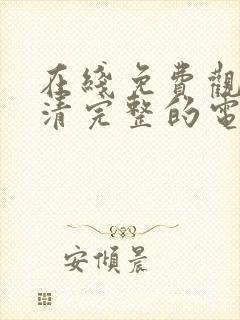 在綫免費觀
清完整的電
安傾晨